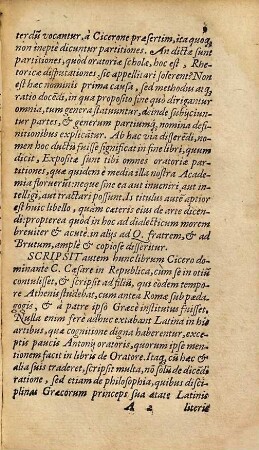 9
terdū vocantur, à Cicerone præsertim, ita quoq;
non ineptè dicuntur partitiones. An dictæ sunt
partitiones, quod oratoriæ scholæ, hoc est, Rhe-
toricæ disputationes sic appellitari solerent? Non
est hæc nominis prima causa, sed methodus ac
ratio docēdi, in qua proposito fine quò dirigantur
omnia, tum genera statuuntur, deinde subijciun-
tur partes, & generum partiumq; nomina defi-
nitionibus explicātur. Ab hac via disserēdi, no-
men hoc ductū fuisse significat in fine libri, quum
dicit, Expositæ sunt tibi omnes oratoriæ par-
titiones, quæ quidem è media illa nostra Acade-
mia floruerūt: neque sine ea aut inueniri, aut in-
telligi, aut tractari possunt. Is titulus autē aptior
est huic libello, quàm cæteris eius de arte dicen-
di: propterea quod in hoc ad dialecticum morem
breuiter & acutè, in alijs ad Q. fratrem, & ad
Brutum, amplè & copiosè disseritur.
SCRIPSIT autem hunc librum Cicero do-
minante C. Cæsare in Republica, cum se in otiū
contulisset, & scripsit ad filiū, qui eodem tempo-
re Athenis studebat, cum antea Romæ sub pæda-
gogis, & à patre ipso Græcè institutus fuisset.
Nulla enim ferè adhuc extabant Latina in his
artibus, quæ cognitione digna haberentur, exce-
ptis paucis Antonij oratoris, quorum ipse men-
tionem facit in libris de Oratore. Itaq; cū hæc &
alia suis traderet, scripsit multa, nō solū de dicēdi
ratione, sed etiam de philosophia, quibus disci-
plinas Græcorum princeps sua ætate Latinis
A 2 literis